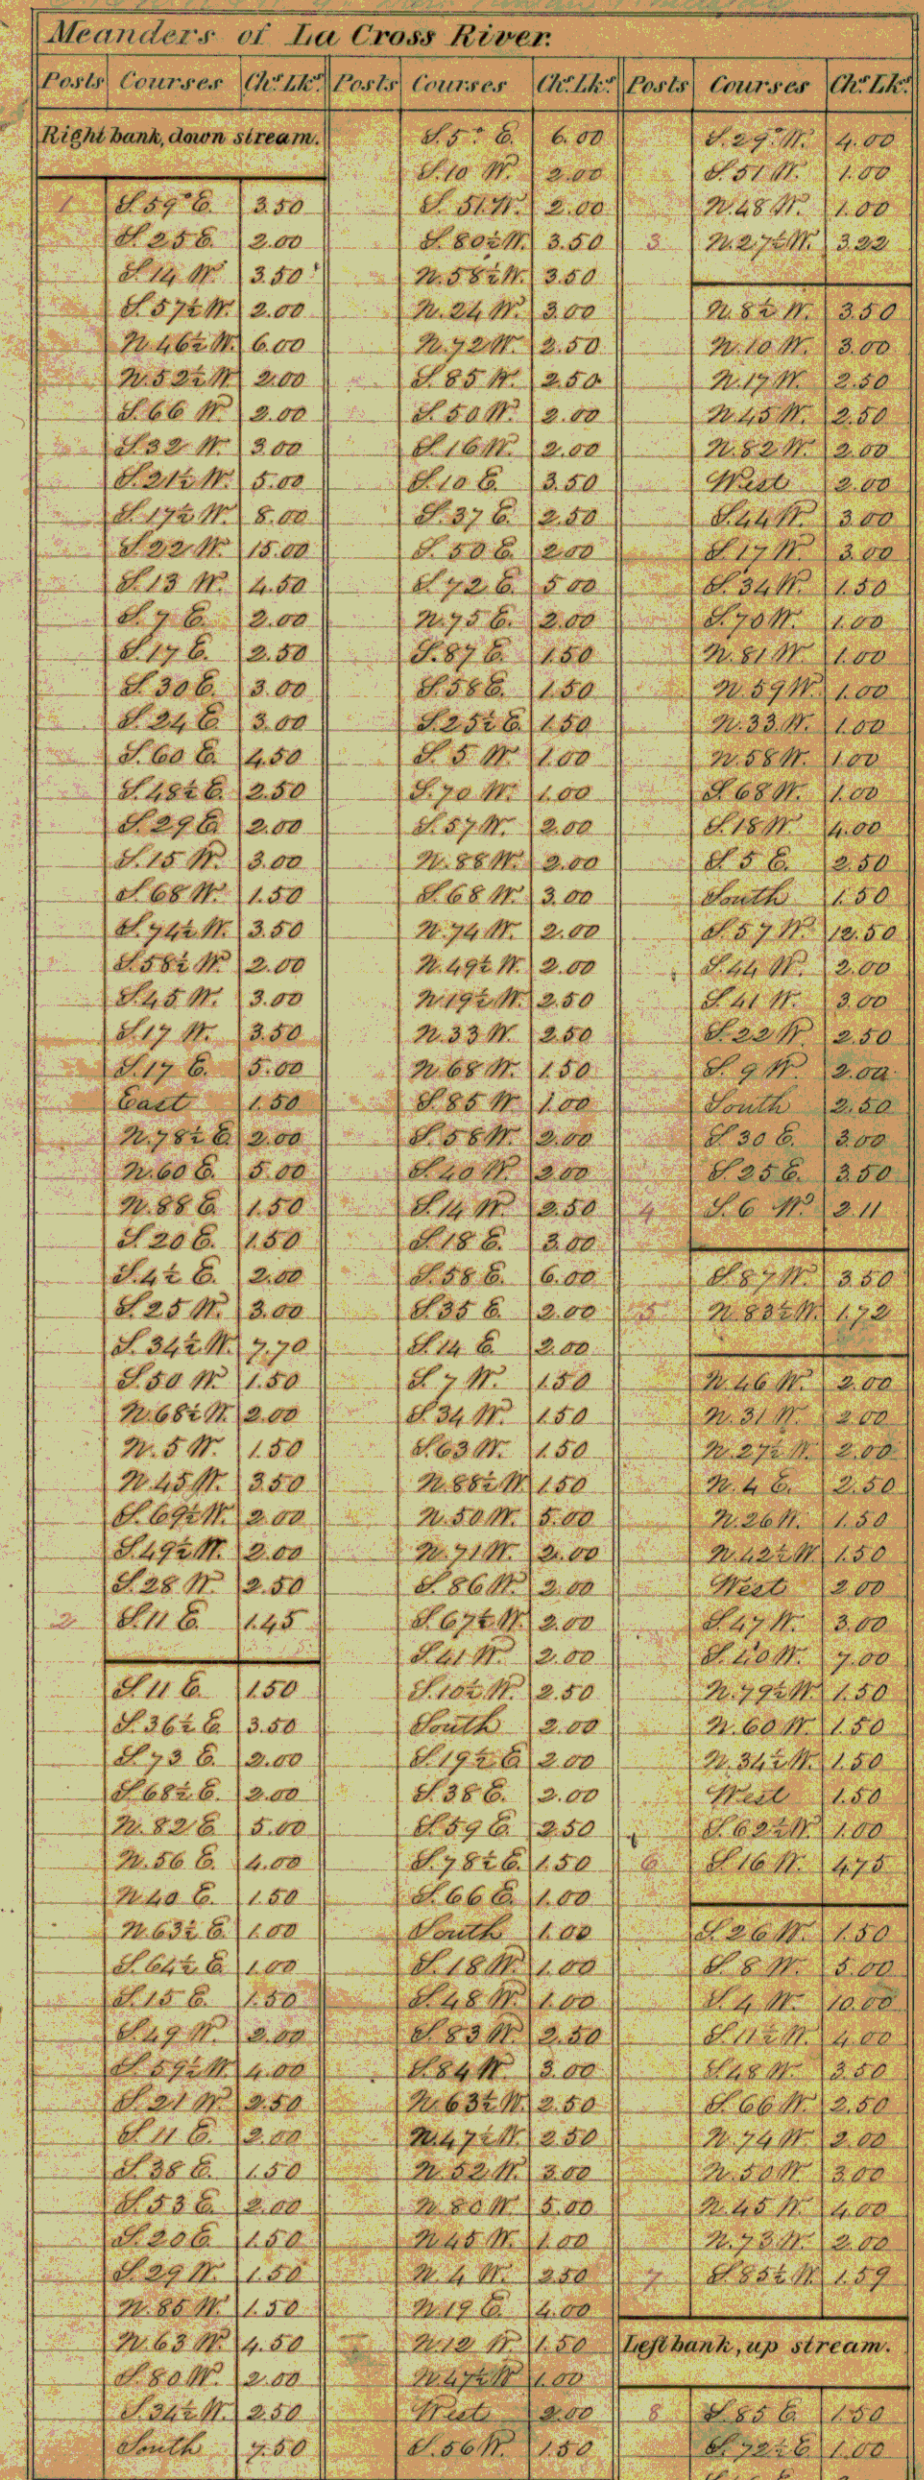 Meanders of La Cross River.
Posts Courses Chs. Lks.
Right bank, down stream.
1 S. 59° E. 3.50
S. 25 E. 2.00
S. 14 W. 3.50
S. 57½ W. 2.00
N. 46½ W. 6.00
N. 52½ W. 2.00
S. 66 W. 2.00
S. 32 W. 3.00
S. 21½ W. 5.00
S. 17½ W. 8.00
S. 22 W. 15.00
S. 13 W. 4.50
S. 7 E. 2.00
S. 17 E. 2.50
S. 30 E. 3.00
S. 24 E. 3.00
S. 60 E. 4.50
S. 48½ E. 2.50
S. 29 E. 2.00
S. 15 W. 3.00
S. 68 W. 1.50
S. 74½ W. 3.50
S. 58½ W. 2.00
S. 45 W. 3.00
S. 17 W. 3.50
S. 17 E. 5.00
East 1.50
N. 78½ E. 2.00
N. 60 E. 5.00
N. 88 E. 1.50
S. 20 E. 1.50
S. 4½ E. 2.00
S. 25 W. 3.00
S. 34½ W. 7.70
S. 50 W. 1.50
N. 68½ W. 2.00
N. 5 W. 1.50
N. 45 W. 3.50
S. 69½ W. 2.00
S. 49½ W. 2.00
S. 28 W. 2.50
2 S. 11 E. 1.45
S. 11 E. 1.50
S. 36½ E. 3.50
S. 73 E. 2.00
S. 68½ E. 2.00
N. 82 E. 5.00
N. 56 E. 4.00
N. 40 E. 1.50
N. 63½ E. 1.00
S. 64½ E. 1.00
S. 15 E. 1.50
S. 49 W. 2.00
S. 59½ W. 4.00
S. 21 W. 2.50
S. 11 E. 2.00
S. 38 E. 1.50
S. 53 E. 2.00
S. 20 E. 1.50
S. 29 W. 1.50
N. 85 W. 1.50
N. 63 W. 4.50
S. 80 W. 2.00
S. 34½ W. 2.50
South 7.50
Posts Courses Chs. Lks.
S. 5° E. 6.00
S. 10 W. 2.00
S. 51 W. 2.00
S. 80½ W. 3.50
N. 58½ W. 3.50
N. 24 W. 3.00
N. 72 W. 2.50
S. 85 W. 2.50
S. 50 W. 2.00
S. 16 W. 2.00
S. 10 E. 3.50
S. 37 E. 2.50
S. 50 E. 2.00
S. 72 E. 5.00
N. 75 E. 2.00
S. 87 E. 1.50
S. 58 E. 1.50
S. 25½ E. 1.50
S. 5 W. 1.00
S. 70 W. 1.00
S. 57 W. 2.00
N. 88 W. 2.00
S. 68 W. 3.00
N. 74 W. 2.00
N. 49½ W. 2.00
N. 19½ W. 2.50
N. 33 W. 2.50
N. 68 W. 1.50
S. 85 W. 1.00
S. 58 W. 2.00
S. 40 W. 2.00
S. 14 W. 2.50
S. 18 E. 3.00
S. 58 E. 6.00
S. 35 E. 2.00
S. 14 E. 2.00
S. 7 W. 1.50
S. 34 W. 1.50
S. 63 W. 1.50
N. 88½ W. 1.50
N. 50 W. 5.00
N. 71 W. 2.00
S. 86 W. 2.00
S. 67½ W. 2.00
S. 41 W. 2.00
S. 10½ W. 2.50
South 2.00
S. 19½ E. 2.00
S. 38 E. 2.00
S. 59 E. 2.50
S. 78½ E. 1.50
S. 66 E. 1.00
South 1.00
S. 18 W. 1.00
S. 48 W. 1.00
S. 83 W. 2.50
S. 84 W. 3.00
N. 63½ W. 2.50
N. 47½ W. 2.50
N. 52 W. 3.00
N. 80 W. 5.00
N. 45 W. 1.00
N. 4 W. 2.50
N. 19 E. 4.00
N. 12 W. 1.50
N. 47½ W. 1.00
West 2.00
S. 56 W. 1.50
Posts Courses Chs. Lks.
S. 29° W. 4.00
S. 51 W. 1.00
N. 48 W. 1.00
3 N. 27½ W. 3.22
N. 8½ W. 3.50
N. 10 W. 3.00
N. 17 W. 2.50
N. 45 W. 2.50
N. 82 W. 2.00
West 2.00
S. 44 W. 3.00
S. 17 W. 3.00
S. 34 W. 1.50
S. 70 W. 1.00
N. 81 W. 1.00
N. 59 W. 1.00
N. 33 W. 1.00
N. 58 W. 1.00
S. 68 W. 1.00
S. 18 W. 4.00
S. 5 E. 2.50
South 1.50
S. 57 W. 12.50
S. 44 W. 2.00
S. 41 W. 3.00
S. 22 W. 2.50
S. 9 W. 2.00
South 2.50
S. 30 E. 3.00
S. 25 E. 3.50
4 S. 6 W. 2.11
S. 87 W. 3.50
5 N. 83½ W. 1.72
N. 46 W. 2.00
N. 31 W. 2.00
N. 27½ W. 2.00
N. 4 E. 2.50
N. 26 W. 1.50
N. 42½ W. 1.50
West 2.00
S. 47 W. 3.00
S. 40 W. 7.00
N. 79½ W. 1.50
N. 60 W. 1.50
N. 34½ W. 1.50
West 1.50
S. 62½ W. 1.00
6 S. 16 W. 4.75
S. 26 W. 1.50
S. 8 W. 5.00
S. 4 W. 10.00
S. 11½ W. 4.00
S. 48 W. 3.50
S. 66 W. 2.50
N. 74 W. 2.00
N. 50 W. 3.00
N. 45 W. 4.00
N. 73 W. 2.00
7 S. 85½ W. 1.59
Left bank, up stream.
8 S. 85 E. 1.50
S. 72½ E. 1.00